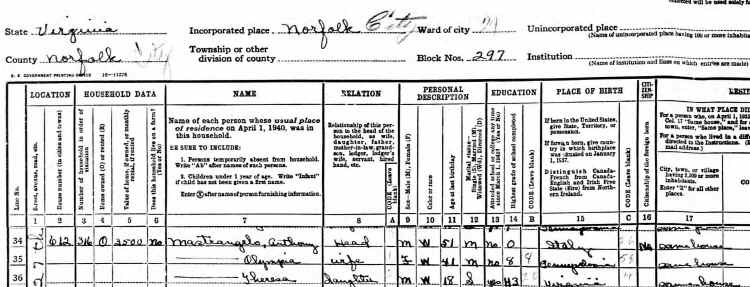 State Virginia Incorporated place Norfolk City Ward of city Unincorporated place
(Name of unincorporated place having 100 or more inhabita
County Norfolk City Township or other division of county Block Nos. 297 Institution
(Name of institution and lines on which entries are made)
U. S. GOVERNMENT PRINTING OFFICE 16-11576
LOCATION HOUSEHOLD DATA NAME RELATION PERSONAL DESCRIPTION EDUCATION PLACE OF BIRTH CITIZENSHIP RESI
Line No.
Street, avenue, road, etc.
House number (in cities and towns)
Number of household in order of visitation
Home owned (O) or rented (R)
Value of home, if owned, or monthly rental, if rented
Does this household live on a farm? (Yes or No)
Name of each person whose usual place of residence on April 1, 1940, was in this household.
BE SURE TO INCLUDE:
1. Persons temporarily absent from household. Write "Ab" after names of such persons.
2. Children under 1 year of age. Write "Infant" if child has not been given a first name.
Enter ⓧ after name of person furnishing information.
Relationship of this person to the head of the household, as wife, daughter, father, mother-in-law, grandson, lodger, lodger's wife, servant, hired hand, etc.
CODE (Leave blank)
Sex—Male (M), Female (F)
Color or race
Age at last birthday
Marital status—Single (S), Married (M), Widowed (Wd), Divorced (D)
Attended school or college any time since March 1, 1940? (Yes or No)
Highest grade of school completed
CODE (Leave blank)
If born in the United States, give State, Territory, or possession.
If foreign born, give country in which birthplace was situated on January 1, 1937.
Distinguish Canada-French from Canada-English and Irish Free State (Eire) from Northern Ireland.
CODE (Leave blank)
Citizenship of the foreign born
IN WHAT PLACE DI
For a person who, on April 1, 1935
Col. 17 "Same house," and for
town, enter, "Same place," leav
For a person who lived in a diff
directed in the Instructions. (E
mail address.)
City, town, or village having 2,500 or more inhabitants.
Enter "R" for all other places.
1 2 3 4 5 6 7 8 A 9 10 11 12 13 14 B 15 C 16 17
34 612 316 O 2500 No Mastrangelo, Anthony Head M W 51 M no 0 Italy Na Same house
35 Olympia wife F W 41 M no 8 Pennsylvania Same house
36 Theresa daughter W 18 S yes H3 Virginia Same house